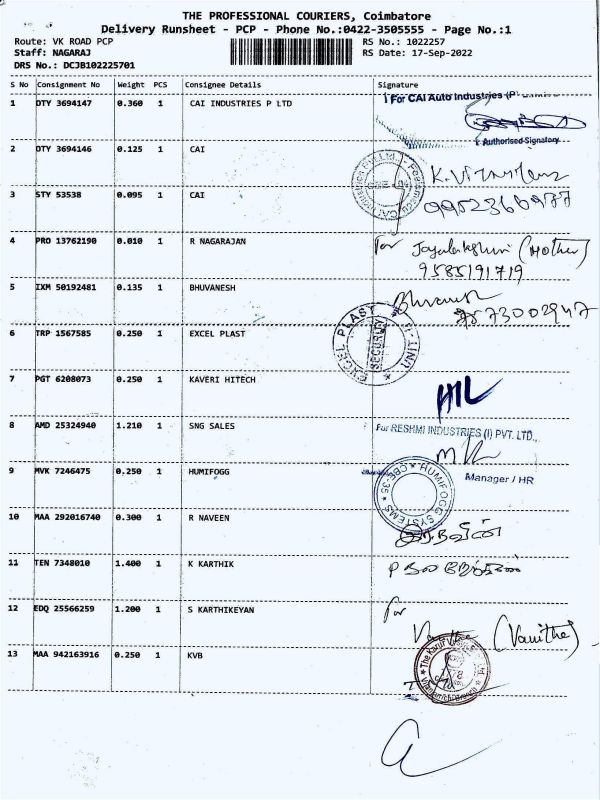 THE PROFESSIONAL COURIERS, Coimbatore
Delivery Runsheet - PCP - Phone No.:0422-3505555 - Page No.:1
Route: VK ROAD PCP RS No.: 1022257
Staff: NAGARAJ RS Date: 17-Sep-2022
DRS No.: DCJB102225701
S No Consignment No Weight PCS Consignee Details Signature
1 OTY 3694147 0.360 1 CAI INDUSTRIES P LTD For CAI Auto Industries (P)
Authorised Signatory
2 OTY 3694146 0.125 1 CAI
3 STY 53538 0.095 1 CAI
4 PRO 13762190 0.010 1 R NAGARAJAN For Jayalakshmi (Mother)
9585191719
5 IXM 50192481 0.135 1 BHUVANESH
73002947
6 TRP 1567585 0.250 1 EXCEL PLAST EXCEL PLAST UNIT-II SECURITY
7 PGT 6208073 0.250 1 KAVERI HITECH
8 AMD 25324940 1.210 1 SNG SALES For RESHMI INDUSTRIES (I) PVT. LTD.,
Manager / HR
9 MVK 7246475 0.250 1 HUMIFOGG HUMIFOGG SYSTEMS CBE-35
10 MAA 292016740 0.300 1 R NAVEEN
11 TEN 7348010 1.400 1 K KARTHIK
12 EDQ 25566259 1.200 1 S KARTHIKEYAN For
(Vanitha)
13 MAA 942163916 0.250 1 KVB